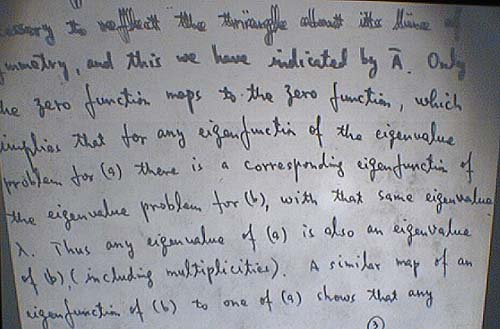 cessary to reflect the triangle about its line of
mmetry, and this we have indicated by Ā. Only
he zero function maps to the zero function, which
implies that for any eigenfunctin of the eigenvalue
problem for (a) there is a corresponding eigenfunctin of
the eigenvalue problem for (b), with that same eigenvalue
λ. Thus any eigenvalue of (a) is also an eigenvalue
of (b), (including multiplicities). A similar map of an
eigenfunction of (b) to one of (a) shows that any